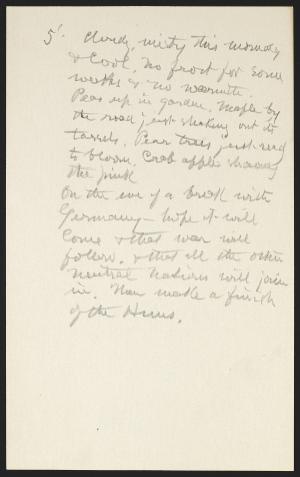 5'. Cloudy, misty this morning
& cool. No frost for some
weeks & no warmth.
Peas up in garden. Maple by
the road just shaking out its
tassels. Pear trees just ready
to bloom. Crab apple showing
the pink
On the eve of a break with
Germany - hope it will
come & that war will
follow. & that all the other
neutral nations will join
in. Then make a finish
of the Huns.